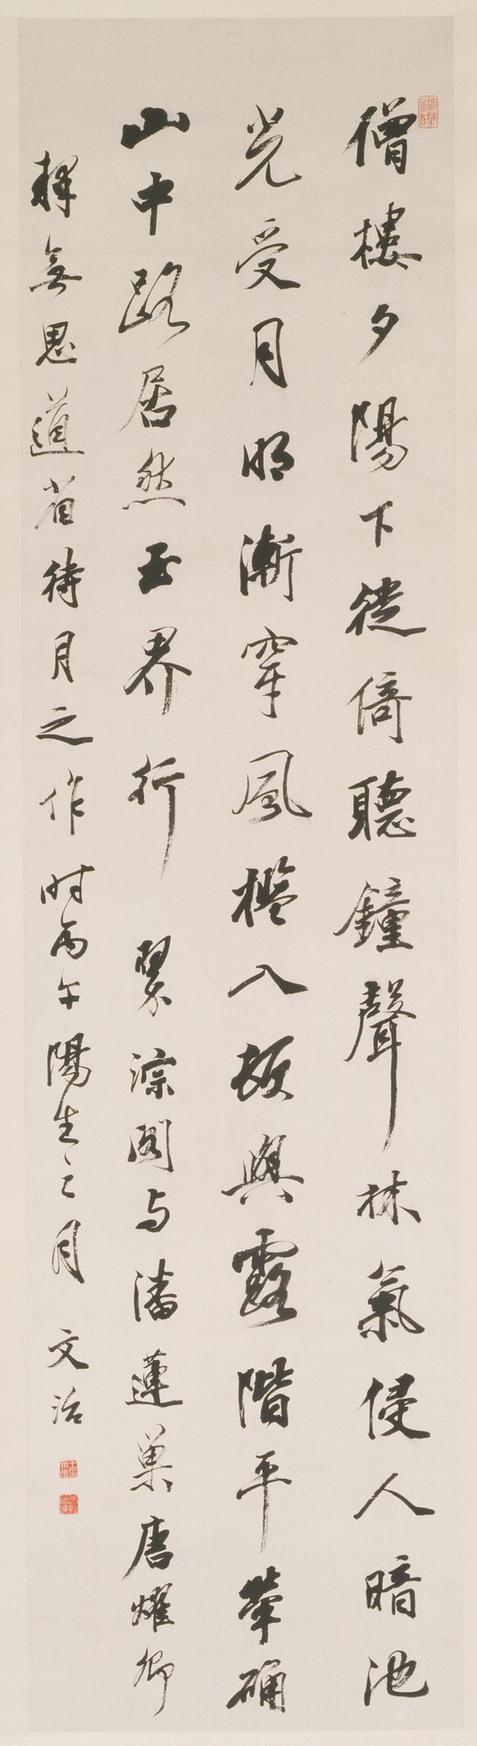 僧樓夕陽下徙倚聽鐘聲林氣侵人暗池
光受月明漸穿風檻入頓與露階平犖确
山中路居然玉界行 翠淙閣与潘蓮巢唐耀卿
釋無思道省待月之作時丙午陽生之月 文治